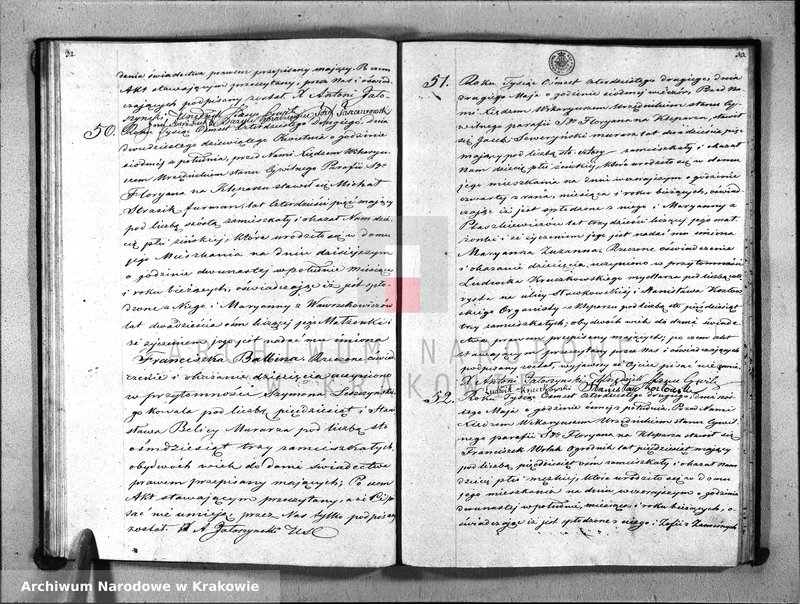 32.
dania świadectwa prawem przepisany mający. Po czem
Akt stawającym przeczytany, przez Nas i oświad-
czających podpisany został X Antoni Jało-
szyński Urzędnik Stanu Cywil
50. Roku Tysiąc Ośmset Czterdziestego Drugiego, dnia
dwudziestego dziewiątego Kwietnia o godzinie
siódmej z południa, przed Nami Księdzem Wikaryu-
szem Urzędnikiem stanu Cywilnego Parafii Sgo
Floryana na Kleparzu stawił się Michał
furman, lat czterdzieści pięć mający
pod liczbą szóstą zamieszkały i okazał Nam dzie-
cię płci żeńskiej, które urodziło się w domu
jego Mieszkania na dniu dzisiejszym
o godzinie dwunastej w południe miesiąca
i roku bieżących, oświadczając iż jest spło-
dzone z Niego i Maryanny z Wawrzekowiczów
lat dwadzieścia ośm liczącej jego Małżonki i
że życzeniem jego jest nadać mu imiona
Franciszka Balbina. Rzeczone oświad-
czenie i okazanie dziecięcia uczyniono
w przytomności Szymona
go Kowala pod liczbą pięćdziesiąt i Sta-
sława Belicy Murarza pod liczbą sto
ośmdziesiąt trzy zamieszkałych,
obydwóch wiek do dania świadectwa
prawem przepisany mających; Po czem
Akt stawającym przeczytany, a iż Pi-
sać nie umieją przez Nas tylko podpisany
został X A Jałoszyński USC
33.
51. Roku Tysiąc Ośmset Czterdziestego drugiego, dnia
drugiego Maja o godzinie siódmej wieczór, Przed Na-
mi Księdzem Wikaryuszem Urzędnikiem stanu Cy-
wilnego parafii Sgo Floryana na Kleparzu, stawił
się Jacek Seweryński murarz lat dwadzieścia pięć
mający pod liczbą sto cztery zamieszkały i okazał
Nam dziecię płci żeńskiej, które urodziło się w domu
jego mieszkania na dniu wczorajszym o godzinie
czwartej z rana, miesiąca i roku bieżących, oświad-
czając iż jest spłodzone z niego i Maryanny z
Płaszkiewiczów lat trzydzieści liczącej jego mał-
żonki i że życzeniem jego jest nadać mu imiona
Maryanna Zuzanna. Rzeczone oświadczenie
i okazanie dziecięcia uczyniono w przytomności
Ludwika Kruczkowskiego mydlarza pod liczbą czte-
rysta na ulicy Sławkowskiej i Stanisława Kozłow-
skiego Organisty z Kleparza pod liczbą sto pięćdziesiąt
trzy zamieszkałych, obydwóch wiek do dania świade-
ctwa prawem przepisany mających; po czem Akt
stawającym przeczytany przez Nas i oświadczających
podpisany został, wyjąwszy Ojca pisać nieumie-
X Antoni Jałoszyński Urzędnik Stanu Cywil
Ludwik Kruczkowski Stanisław Kozłowski
52. Roku Tysiąc Ośmset Czterdziestego drugiego, dnia
Maja o godzinie ósmej z południa, Przed Nami
Księdzem Wikaryuszem Urzędnikiem stanu Cywil-
nego parafii Sgo Floryana na Kleparzu stawił się
Franciszek Wolak Ogrodnik lat pięćdziesiąt mający
pod liczbą pięćdziesiąt ośm zamieszkały i okazał Nam
dziecię płci męzkiej, które urodziło się w domu
jego mieszkania na dniu wczorajszym o godzinie
dwunastej w południe, miesiąca i roku bieżących, o-
świadczając iż jest spłodzone z niego i Zofii z
ARCHIWUM NARODOWE
W KRAKOWIE
Archiwum Narodowe w Krakowie